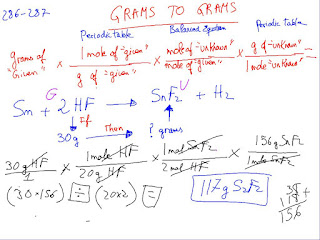 286-287
GRAMS TO GRAMS
Periodic table Balanced Equation Periodic table
grams of "Given" × 1 mole of "given" / g of "given" × mole of "unknown" / mole of "given" × g of "unknown" / 1 mole "unknown" =
G U
Sn + 2HF → SnF₂ + H₂
If Then
30g ? grams
30 g HF / 1 × 1 mole HF / 20 g HF × 1 mol SnF₂ / 2 mol HF × 156 g SnF₂ / 1 mole SnF₂
(30×156) ÷ (20×2) =
117 g SnF₂
38
118 +
156